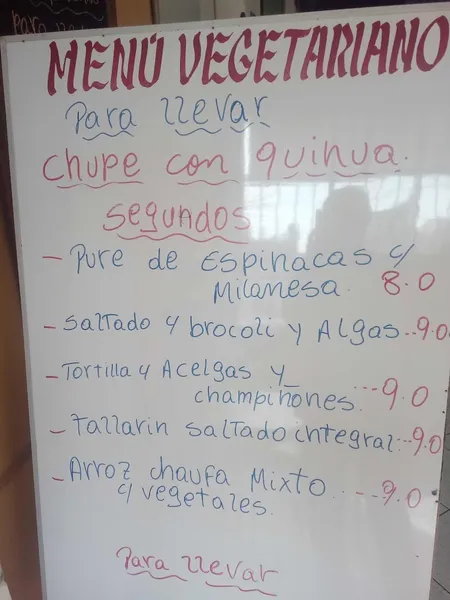 Para
MENÚ VEGETARIANO
Para llevar
Chupe con quinua.
segundos
- Pure de Espinacas c/
Milanesa. 8.0
- Saltado c/ brocoli y Algas..9.0
- Tortilla c/ Acelgas y
champiñones. ...9.0
- Tallarin saltado integral...9.0
- Arroz chaufa Mixto
c/ vegetales. ...9.0
Para llevar